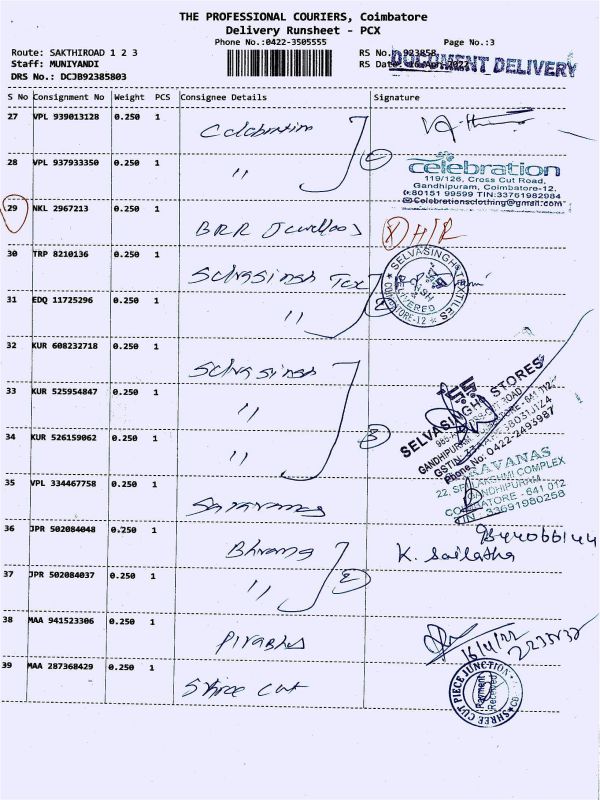 THE PROFESSIONAL COURIERS, Coimbatore
Delivery Runsheet - PCX
Phone No.:0422-3505555
Page No.:3
Route: SAKTHIROAD 1 2 3
RS No.: 923858
Staff: MUNIYANDI
DOCUMENT DELIVERY
DRS No.: DCJB92385803
S No Consignment No Weight PCS Consignee Details Signature
27 VPL 939013128 0.250 1 Celebration
28 VPL 937933350 0.250 1 "
Celebration
119/126, Cross Cut Road,
Gandhipuram, Coimbatore-12.
80151 99599 TIN:33761982984
Celebretionsclothing@gmail.com
29 NKL 2967213 0.250 1 BRR Jewellers
30 TRP 8210136 0.250 1 Selvasingh Tex
SELVASINGH TEXTILES
DELIVERED
COIMBATORE-12
31 EDQ 11725296 0.250 1 "
32 KUR 608232718 0.250 1 Selvasingh
33 KUR 525954847 0.250 1 "
SELVASINGH STORES
Phone No: 0422-2493987
34 KUR 526159062 0.250 1 "
35 VPL 334467758 0.250 1 Saravanas
SARAVANAS
22, SRI LAKSHMI COMPLEX
GANDHIPURAM
COIMBATORE - 641 012
TIN 33691980258
36 JPR 502084048 0.250 1
K. Sailatha
37 JPR 502084037 0.250 1 "
38 MAA 941523306 0.250 1 Pirabhs
16/4/22
39 MAA 287368429 0.250 1 Shree cut
SHREE CUT PIECE JUNCTION
Payment
Received